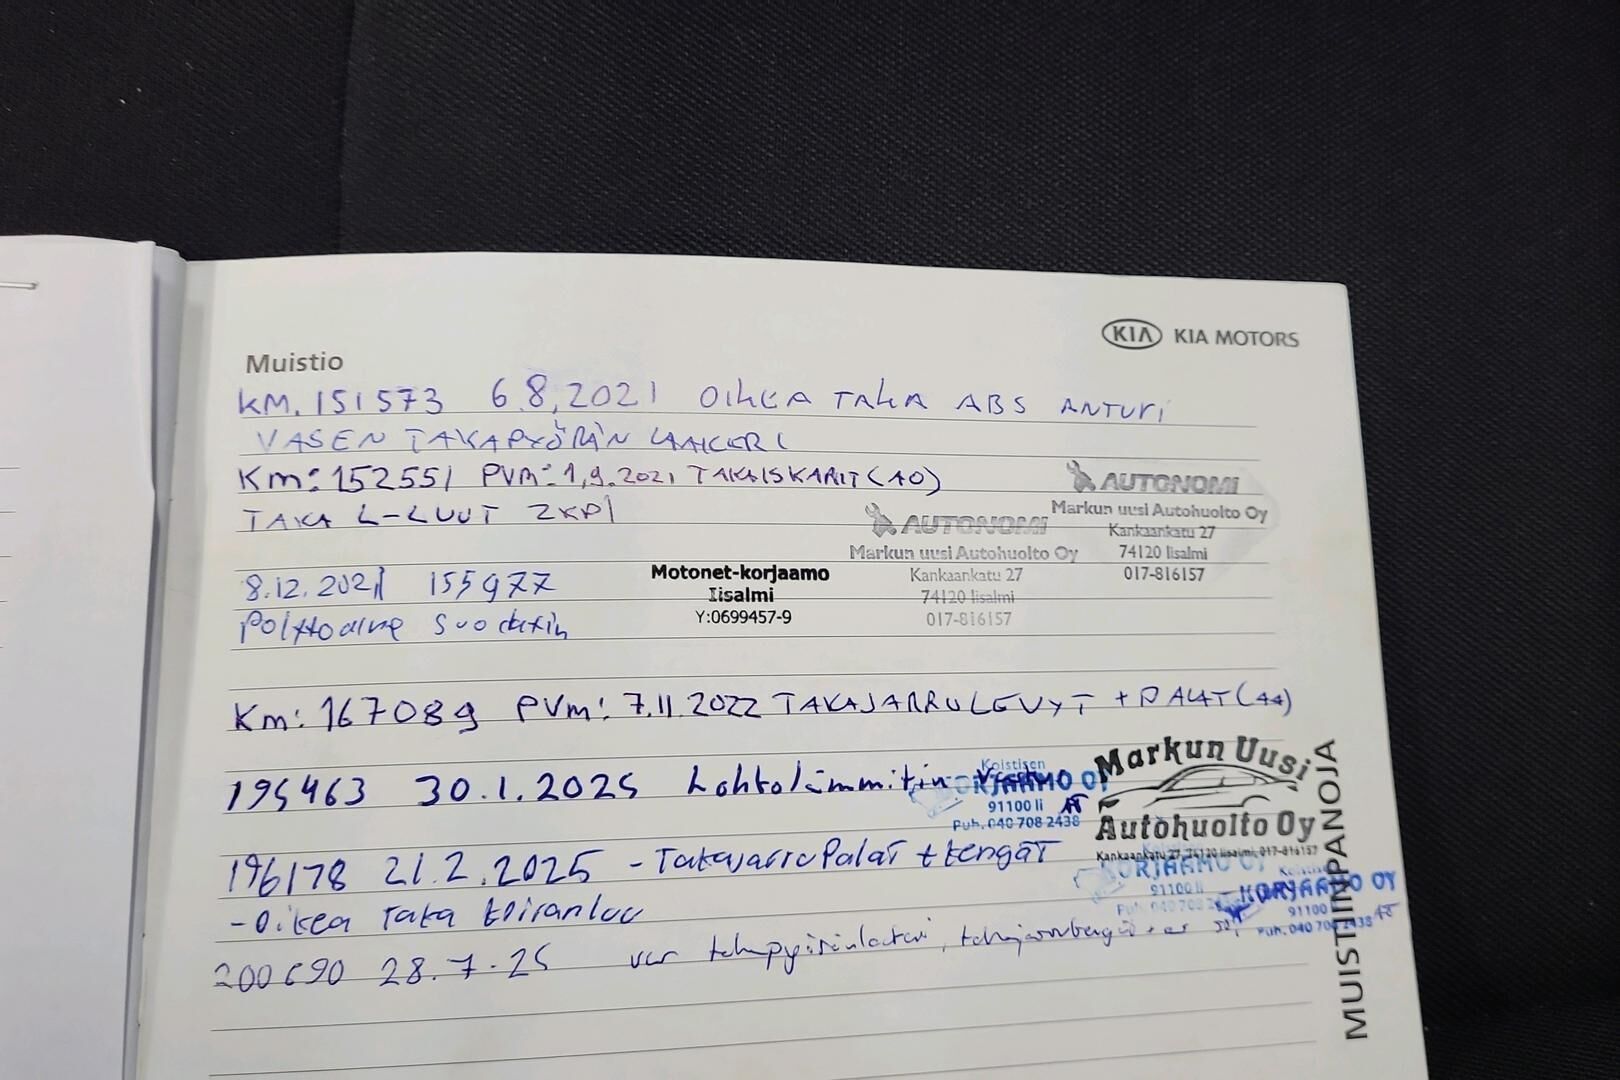 KIA KIA MOTORS
Muistio
KM. 151573 6.8.2021 OIKEA TAKA ABS ANTURI
VASEN TAKAPYÖRÄN LAAKERI
KM: 152551 PVM: 1.9.2021 TAKAISKARIT (AO)
TAKA L-LUUT 2KPL
AUTONOMI
Markun uusi Autohuolto Oy
Kankaankatu 27
74120 Iisalmi
017-816157
AUTONOMI
Markun uusi Autohuolto Oy
Kankaankatu 27
74120 Iisalmi
017-816157
8.12.2021 155977
Motonet-korjaamo
Iisalmi
Y:0699457-9
Polttoaine suodatin
KM: 167089 PVM: 7.11.2022 TAKAJARRULEVYT + PALAT (AA)
Markun Uusi
Autohuolto Oy
Kankaankatu 27, 74120 Iisalmi, 017-816157
195463 30.1.2025 Lohkolämmitin
Koistisen
KORJAAMO OY
91100 Ii
Puh. 040 708 2438
196178 21.2.2025 - Takajarru Palat + tengat
KORJAAMO OY
91100 Ii
Puh. 040 708
- Oikea Taka koiranluu
KORJAAMO OY
91100
Puh. 040 708 2438
200690 28.7.25 takapyöränlaakeri,
MUISTIINPANOJA